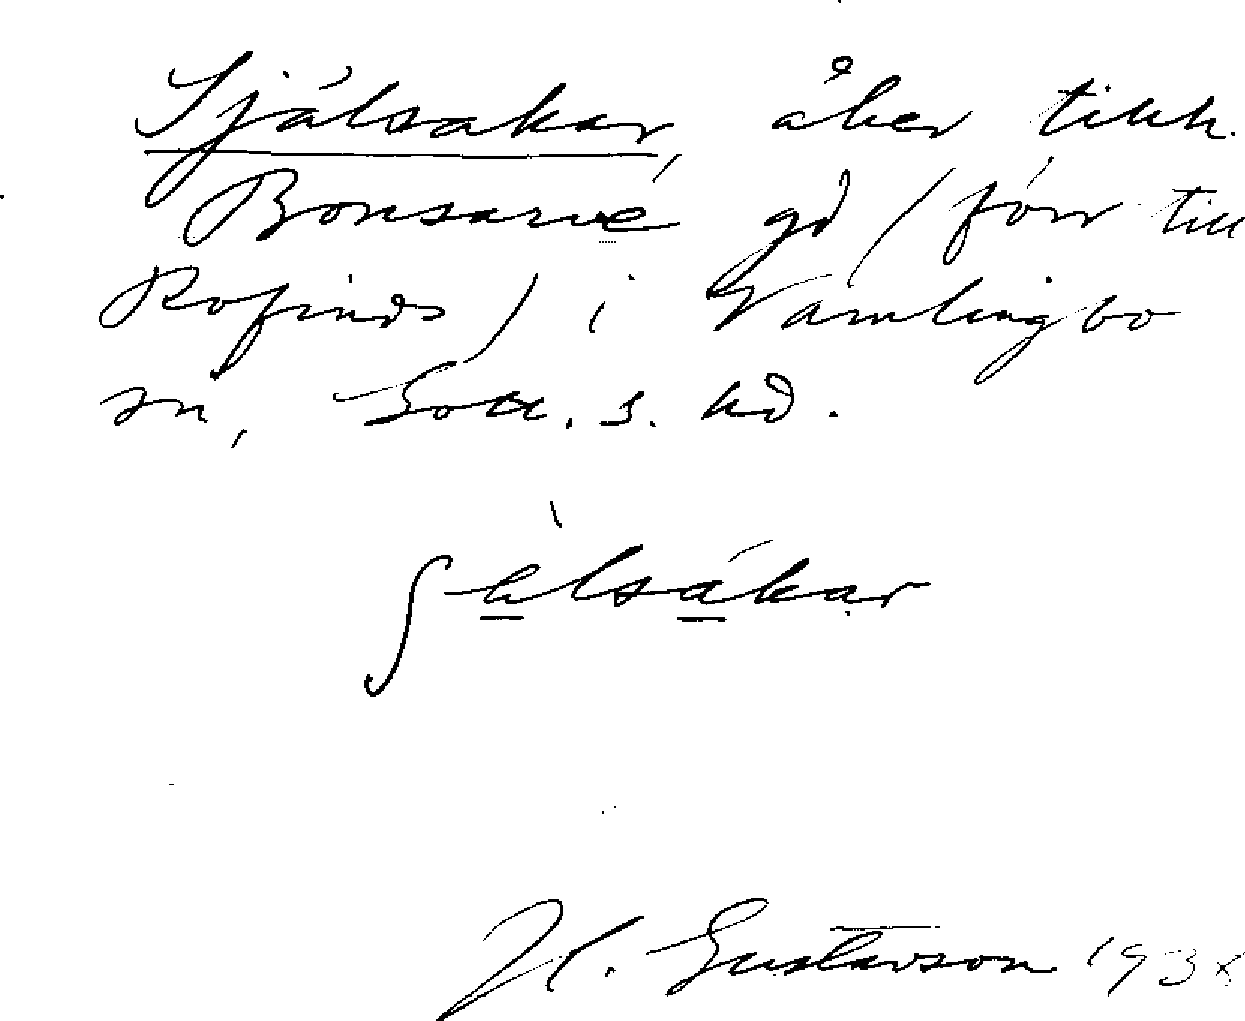 Själsakar, åker tikh.
Bonsarve gd (förr till
Rofinds) i Vamlingbo
sn, Gotl. s. hd.
ʃɛlsákar
H. Gustavson 193x